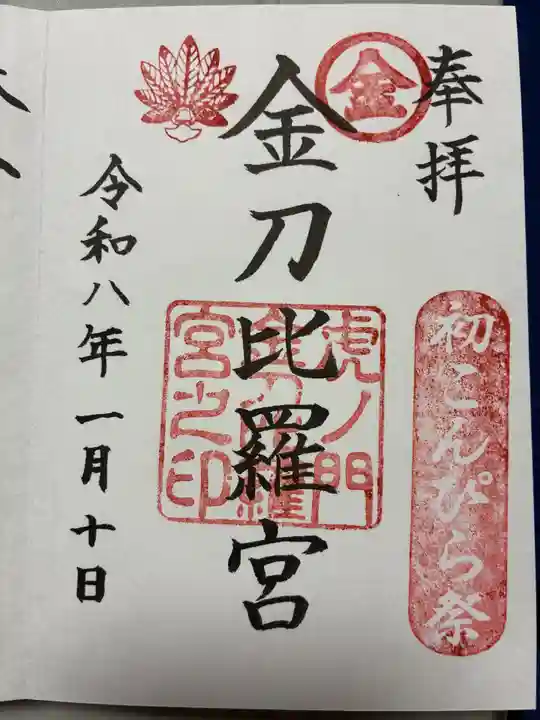 奉拝
金
初こんぴら祭
金刀比羅宮
虎ノ門
金刀比羅
宮之印
令和八年一月十日